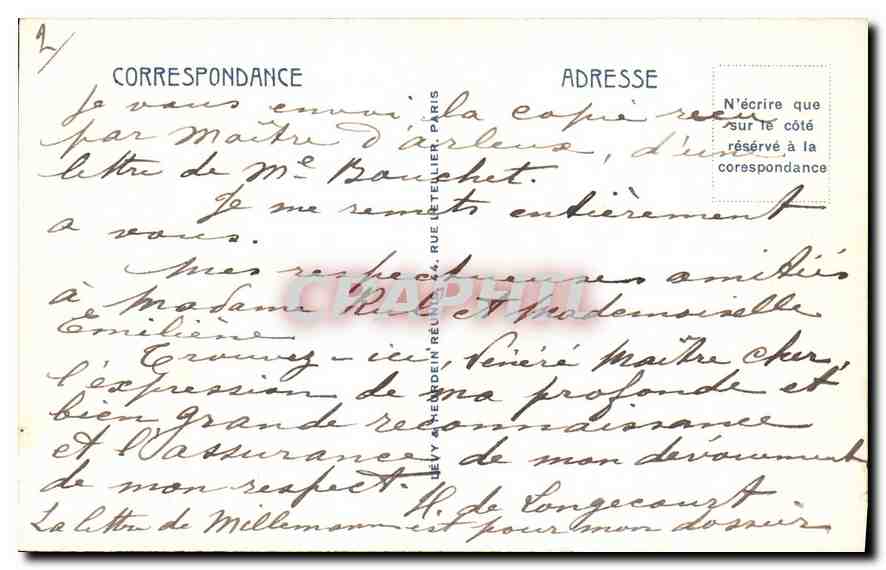 2/
CORRESPONDANCE
ADRESSE
N'écrire que
sur le côté
réservé à la
corespondance
Je vous envoi la copie reçu
par Maître d'arleux, d'une
lettre de Me Bouchet.
Je me remets entièrement
a vous.
Mes respectueuses amitiés
à Madame et Mademoiselle
Emiliène
Trouvez-ici, Vénéré Maître cher,
l'expression de ma profonde et
bien grande reconnaissance
et l'assurance de mon dévouement
de mon respect.
H. de Longecourt
La lettre de Millemann est pour mon dossier
LÉVY & NEURDEIN RÉUNIS, 44, RUE LETELLIER, PARIS
CPAPHIL